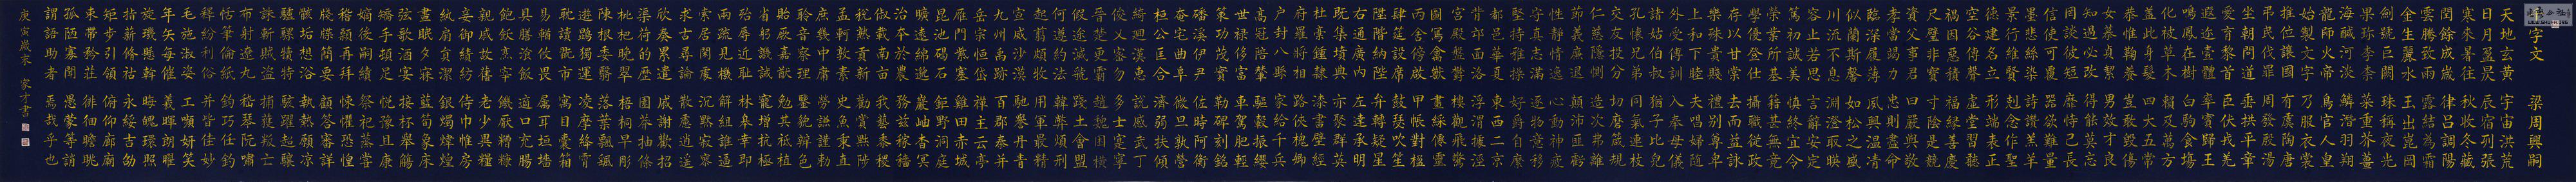 千字文 梁周興嗣
天地玄黃宇宙洪荒
日月盈昃辰宿列張
寒來暑往秋收冬藏
閏餘成歲律呂調陽
雲騰致雨露結為霜
金生麗水玉出崑岡
劍號巨闕珠稱夜光
果珍李柰菜重芥薑
海鹹河淡鱗潛羽翔
龍師火帝鳥官人皇
始製文字乃服衣裳
推位讓國有虞陶唐
弔民伐罪周發殷湯
坐朝問道垂拱平章
愛育黎首臣伏戎羌
遐邇壹體率賓歸王
鳴鳳在樹白駒食場
化被草木賴及萬方
蓋此身髮四大五常
恭惟鞠養豈敢毀傷
女慕貞絜男效才良
知過必改得能莫忘
罔談彼短靡恃己長
信使可覆器欲難量
墨悲絲染詩讚羔羊
景行維賢克念作聖
德建名立形端表正
空谷傳聲虛堂習聽
禍因惡積福緣善慶
尺璧非寶寸陰是競
資父事君曰嚴與敬
孝當竭力忠則盡命
臨深履薄夙興溫凊
似蘭斯馨如松之盛
川流不息淵澄取映
容止若思言辭安定
篤初誠美慎終宜令
榮業所基籍甚無竟
學優登仕攝職從政
存以甘棠去而益詠
樂殊貴賤禮別尊卑
上和下睦夫唱婦隨
外受傅訓入奉母儀
諸姑伯叔猶子比兒
孔懷兄弟同氣連枝
交友投分切磨箴規
仁慈隱惻造次弗離
節義廉退顛沛匪虧
性靜情逸心動神疲
守真志滿逐物意移
堅持雅操好爵自縻
都邑華夏東西二京
背邙面洛浮渭據涇
宮殿盤鬱樓觀飛驚
圖寫禽獸畫綵僊靈
丙舍傍啟甲帳對楹
肆筵設席鼓瑟吹笙
陞階納陛弁轉疑星
右通廣內左達承明
既集墳典亦聚群英
杜稾鍾隸漆書壁經
府羅將相路俠槐卿
戶封八縣家給千兵
高冠陪輦驅轂振纓
世祿侈富車駕肥輕
策功茂實勒碑刻銘
磻溪伊尹佐時阿衡
奄宅曲阜微旦孰營
桓公匡合濟弱扶傾
綺迴漢惠說感武丁
俊乂密勿多士寔寧
晉楚更霸趙魏困橫
假途滅虢踐土會盟
何遵約法韓弊煩刑
起翦頗牧用軍最精
宣威沙漠馳譽丹青
九州禹跡百郡秦并
岳宗恆岱禪主云亭
雁門紫塞雞田赤城
昆池碣石鉅野洞庭
曠遠綿邈巖岫杳冥
治本於農務茲稼穡
俶載南畝我藝黍稷
稅熟貢新勸賞黜陟
孟軻敦素史魚秉直
庶幾中庸勞謙謹勅
聆音察理鑒貌辨色
貽厥嘉猷勉其祗植
省躬譏誡寵增抗極
殆辱近恥林皋幸即
兩疏見機解組誰逼
索居閑處沉默寂寥
求古尋論散慮逍遙
欣奏累遣慼謝歡招
渠荷的歷園莽抽條
枇杷晚翠梧桐早彫
陳根委翳落葉飄颻
遊鵾獨運凌摩絳霄
耽讀翫市寓目囊箱
易輶攸畏屬耳垣墻
具膳飡飯適口充腸
飽飫烹宰饑厭糟糠
親戚故舊老少異糧
妾御績紡侍巾帷房
紈扇圓潔銀燭煒煌
晝眠夕寐藍筍象床
弦歌酒宴接杯舉觴
矯手頓足悅豫且康
嫡後嗣續祭祀蒸嘗
稽顙再拜悚懼恐惶
牋牒簡要顧答審詳
骸垢想浴執熱願涼
驢騾犢特駭躍超驤
誅斬賊盜捕獲叛亡
布射遼丸嵇琴阮嘯
恬筆倫紙鈞巧任釣
釋紛利俗并皆佳妙
毛施淑姿工顰妍笑
年矢每催羲暉朗曜
旋璣懸斡晦魄環照
指薪修祜永綏吉劭
矩步引領俯仰廊廟
束帶矜莊徘徊瞻眺
孤陋寡聞愚蒙等誚
謂語助者焉哉乎也
庚寅歲末 家才書